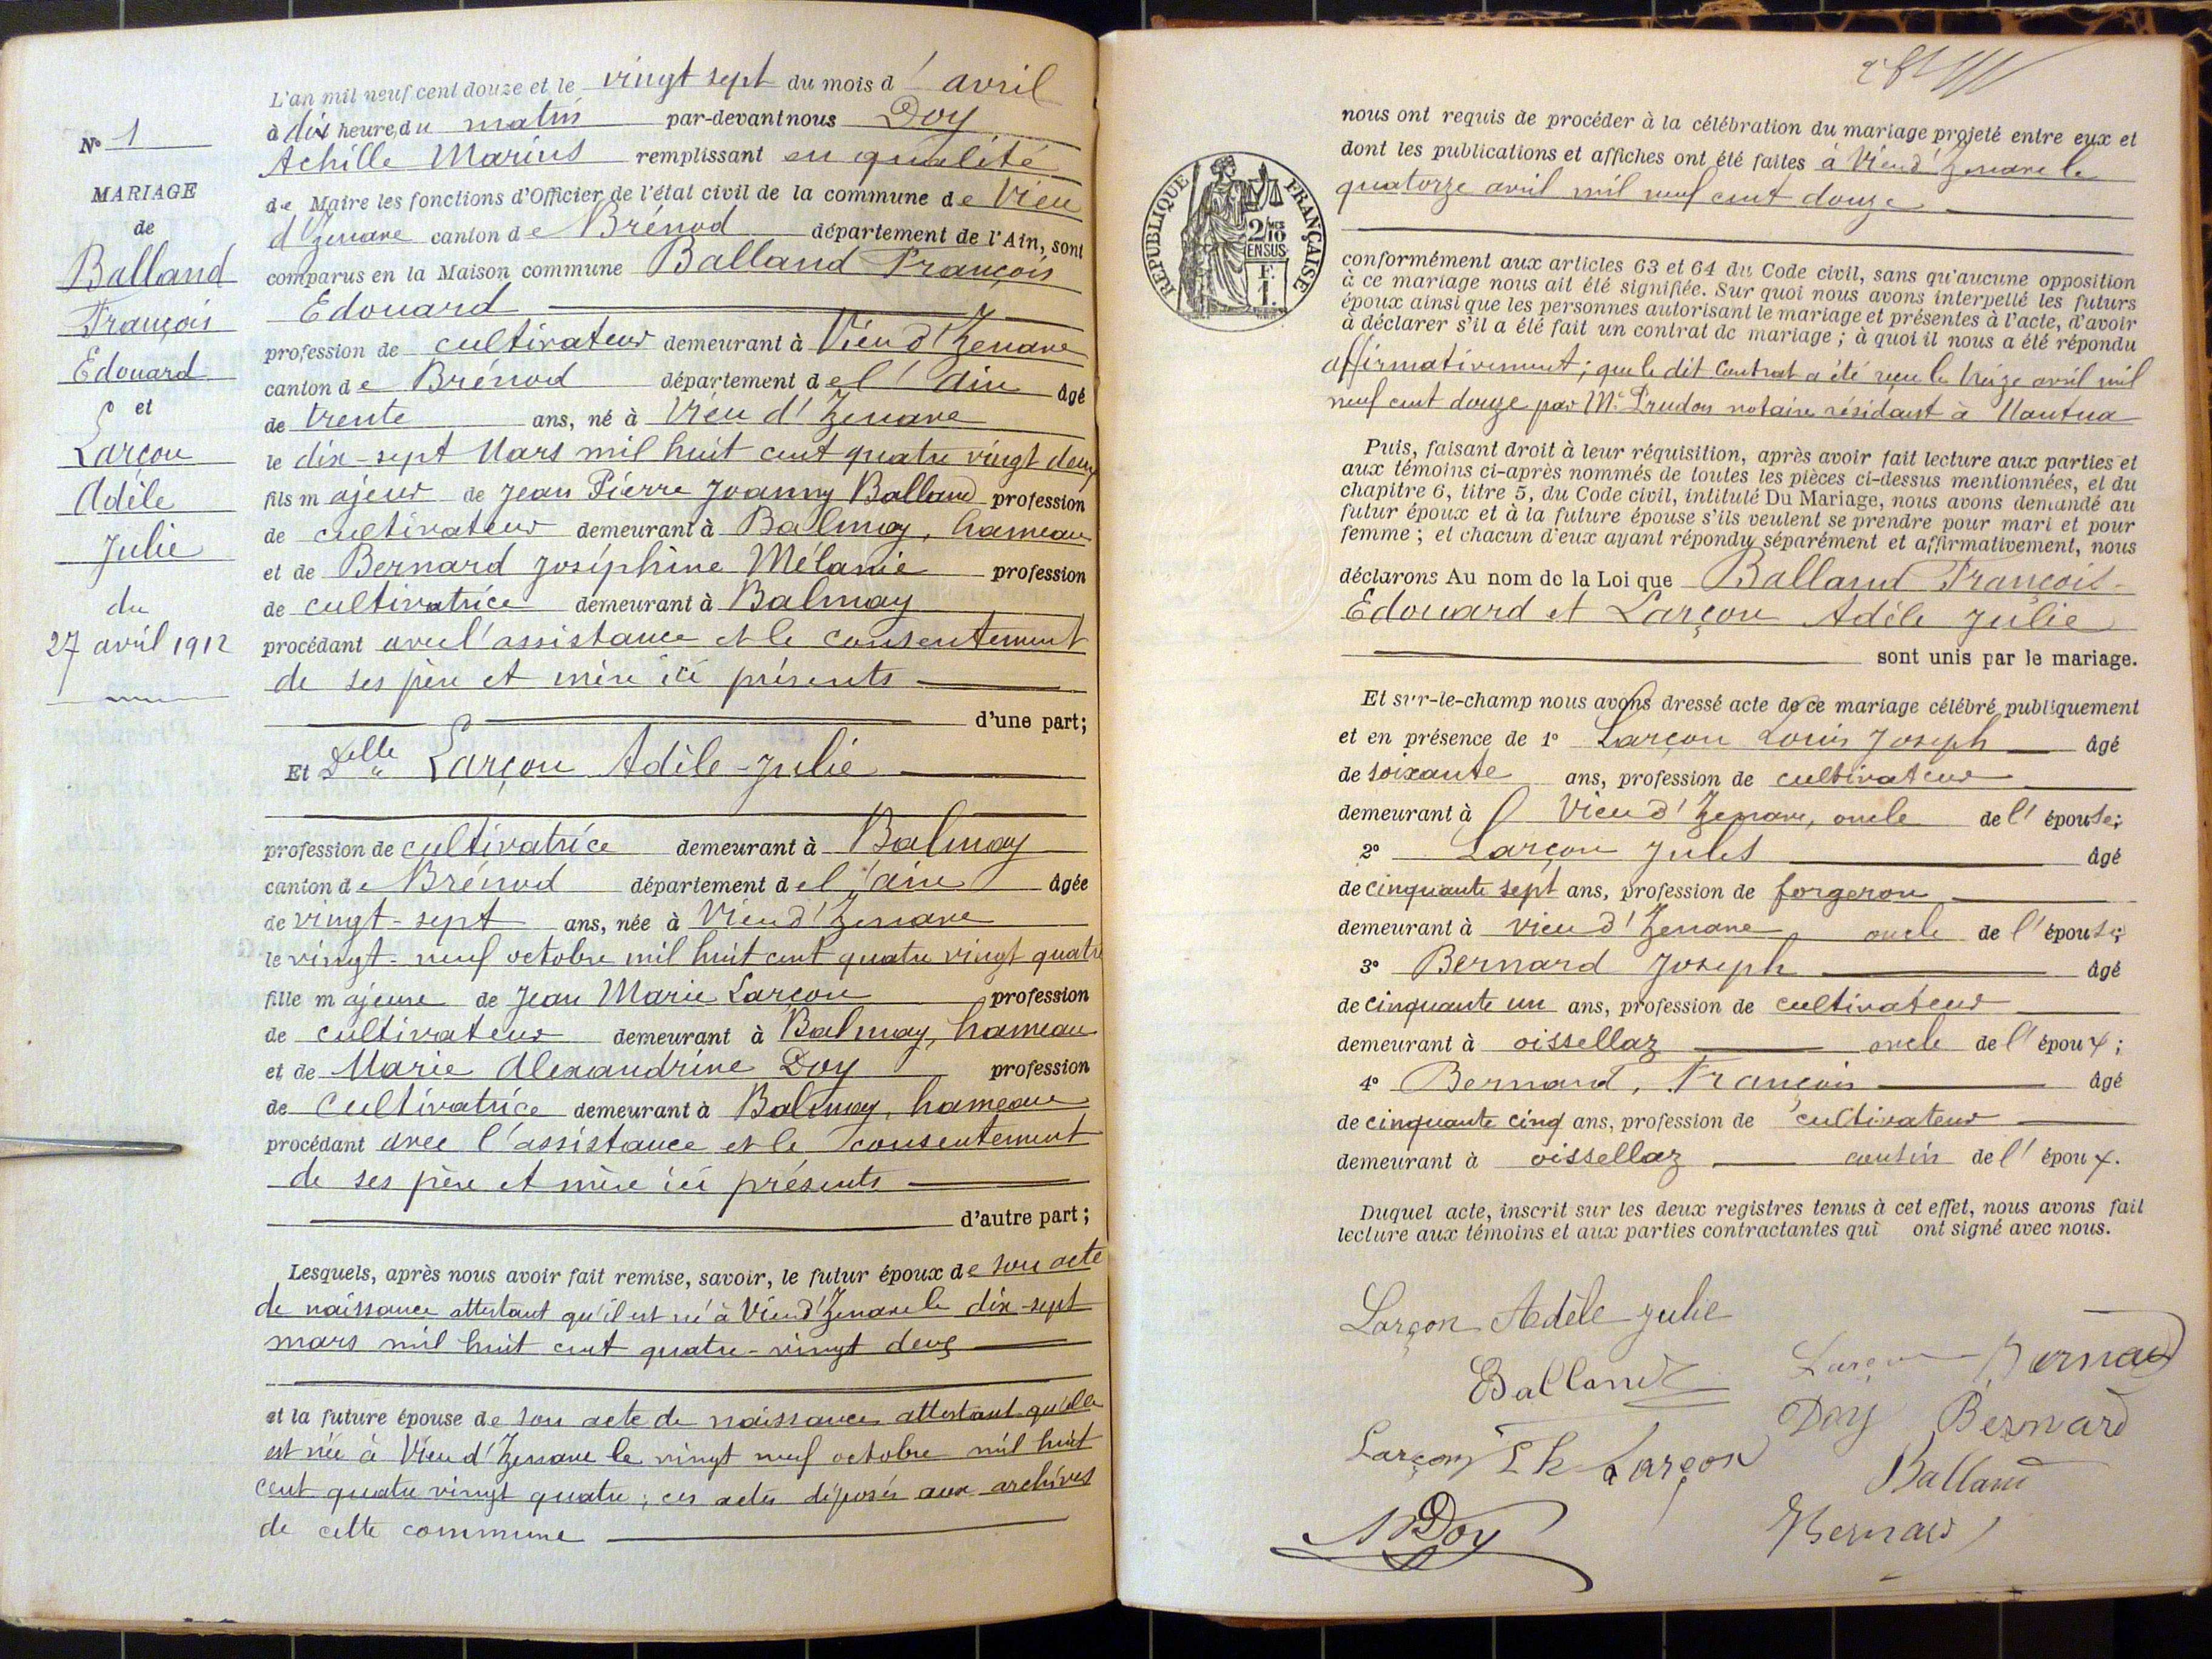 N° 1
MARIAGE
de
Balland
François
Edouard
et
Larçon
Adèle
Julie
du
27 avril 1912
L'an mil neuf cent douze et le vingt sept du mois d'avril
à dix heure du matin par-devant nous Doy
Achille Marius remplissant en qualité
de Maire les fonctions d'Officier de l'état civil de la commune de Vieu
d'Izenave canton de Brénod département de l'Ain, sont
comparus en la Maison commune Balland François
Edouard
profession de cultivateur demeurant à Vieu d'Izenave
canton de Brénod département de l'Ain âgé
de trente ans, né à Vieu d'Izenave
le dix-sept Mars mil huit cent quatre vingt deux
fils majeur de Jean Pierre Joanny Balland profession
de cultivateur demeurant à Balmay, hameau
et de Bernard Joséphine Mélanie profession
de cultivatrice demeurant à Balmay
procédant avec l'assistance et le consentement
de ses père et mère ici présents
d'une part;
Et Delle Larçon Adèle-Julie
profession de cultivatrice demeurant à Balmay
canton de Brénod département de l'ain âgée
de vingt-sept ans, née à Vieu d'Izenave
le vingt-neuf octobre mil huit cent quatre vingt quatre
fille majeure de Jean Marie Larçon profession
de cultivateur demeurant à Balmay, hameau
et de Marie Alexandrine Doy profession
de cultivatrice demeurant à Balmay, hameau
procédant avec l'assistance et le consentement
de ses père et mère ici présents
d'autre part;
Lesquels, après nous avoir fait remise, savoir, le futur époux de son acte
de naissance attestant qu'il est né à Vieu d'Izenave le dix-sept
mars mil huit cent quatre-vingt deux
et la future épouse de son acte de naissance attestant qu'elle
est née à Vieu d'Izenave le vingt neuf octobre mil huit
cent quatre vingt quatre; ces actes déposés aux archives
de cette commune
nous ont requis de procéder à la célébration du mariage projeté entre eux et
dont les publications et affiches ont été faites à Vieu d'Izenave le
quatorze avril mil neuf cent douze
RÉPUBLIQUE FRANÇAISE
2/10 MES
EN SUS
F.
1.
conformément aux articles 63 et 64 du Code civil, sans qu'aucune opposition
à ce mariage nous ait été signifiée. Sur quoi nous avons interpellé les futurs
époux ainsi que les personnes autorisant le mariage et présentes à l'acte, d'avoir
à déclarer s'il a été fait un contrat de mariage; à quoi il nous a été répondu
affirmativement; que le dit Contrat a été reçu le treize avril mil
neuf cent douze par Me Prudon notaire résidant à Nantua
Puis, faisant droit à leur réquisition, après avoir fait lecture aux parties et
aux témoins ci-après nommés de toutes les pièces ci-dessus mentionnées, et du
chapitre 6, titre 5, du Code civil, intitulé Du Mariage, nous avons demandé au
futur époux et à la future épouse s'ils veulent se prendre pour mari et pour
femme; et chacun d'eux ayant répondu séparément et affirmativement, nous
déclarons Au nom de la Loi que Balland François-
Edouard et Larçon Adèle Julie
sont unis par le mariage.
Et sur-le-champ nous avons dressé acte de ce mariage célébré publiquement
et en présence de 1° Larçon Louis Joseph âgé
de soixante ans, profession de cultivateur
demeurant à Vieu d'Izenave, oncle de l'épouse;
2° Larçon Jules âgé
de cinquante sept ans, profession de forgeron
demeurant à vieu d'Izenave oncle de l'épouse;
3° Bernard Joseph âgé
de cinquante un ans, profession de cultivateur
demeurant à oissellaz oncle de l'époux;
4° Bernard, François âgé
de cinquante cinq ans, profession de cultivateur
demeurant à oissellaz cousin de l'époux.
Duquel acte, inscrit sur les deux registres tenus à cet effet, nous avons fait
lecture aux témoins et aux parties contractantes qui ont signé avec nous.
Larçon Adèle Julie
Balland Larçon Bernard
Doy Bernard
Larçon Th Larçon
Balland
ADoy Bernard